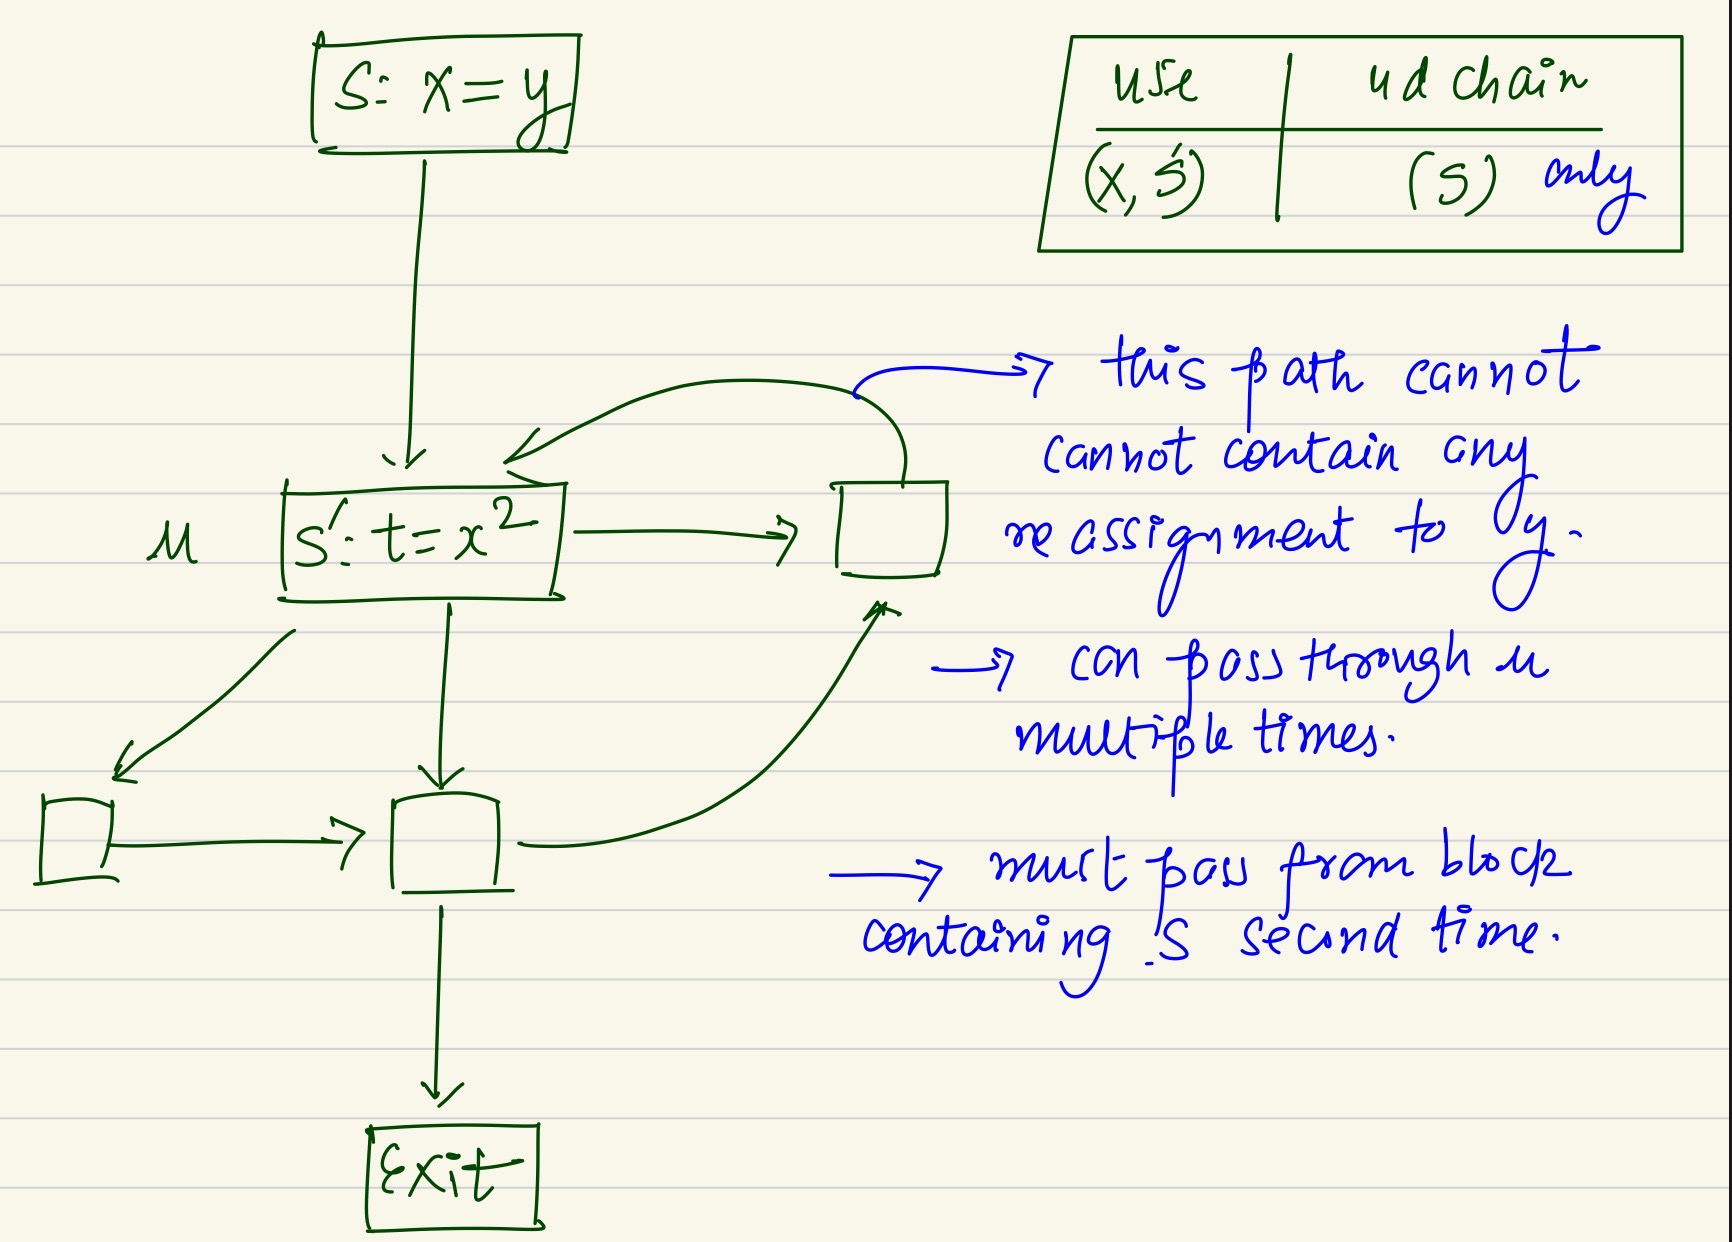 S: x = y
use | ud chain
(x, S') | (S) only
this path cannot
cannot contain any
reassignment to y.
u S': t = x²
can pass through u
multiple times.
must pass from block
containing S second time.
Exit